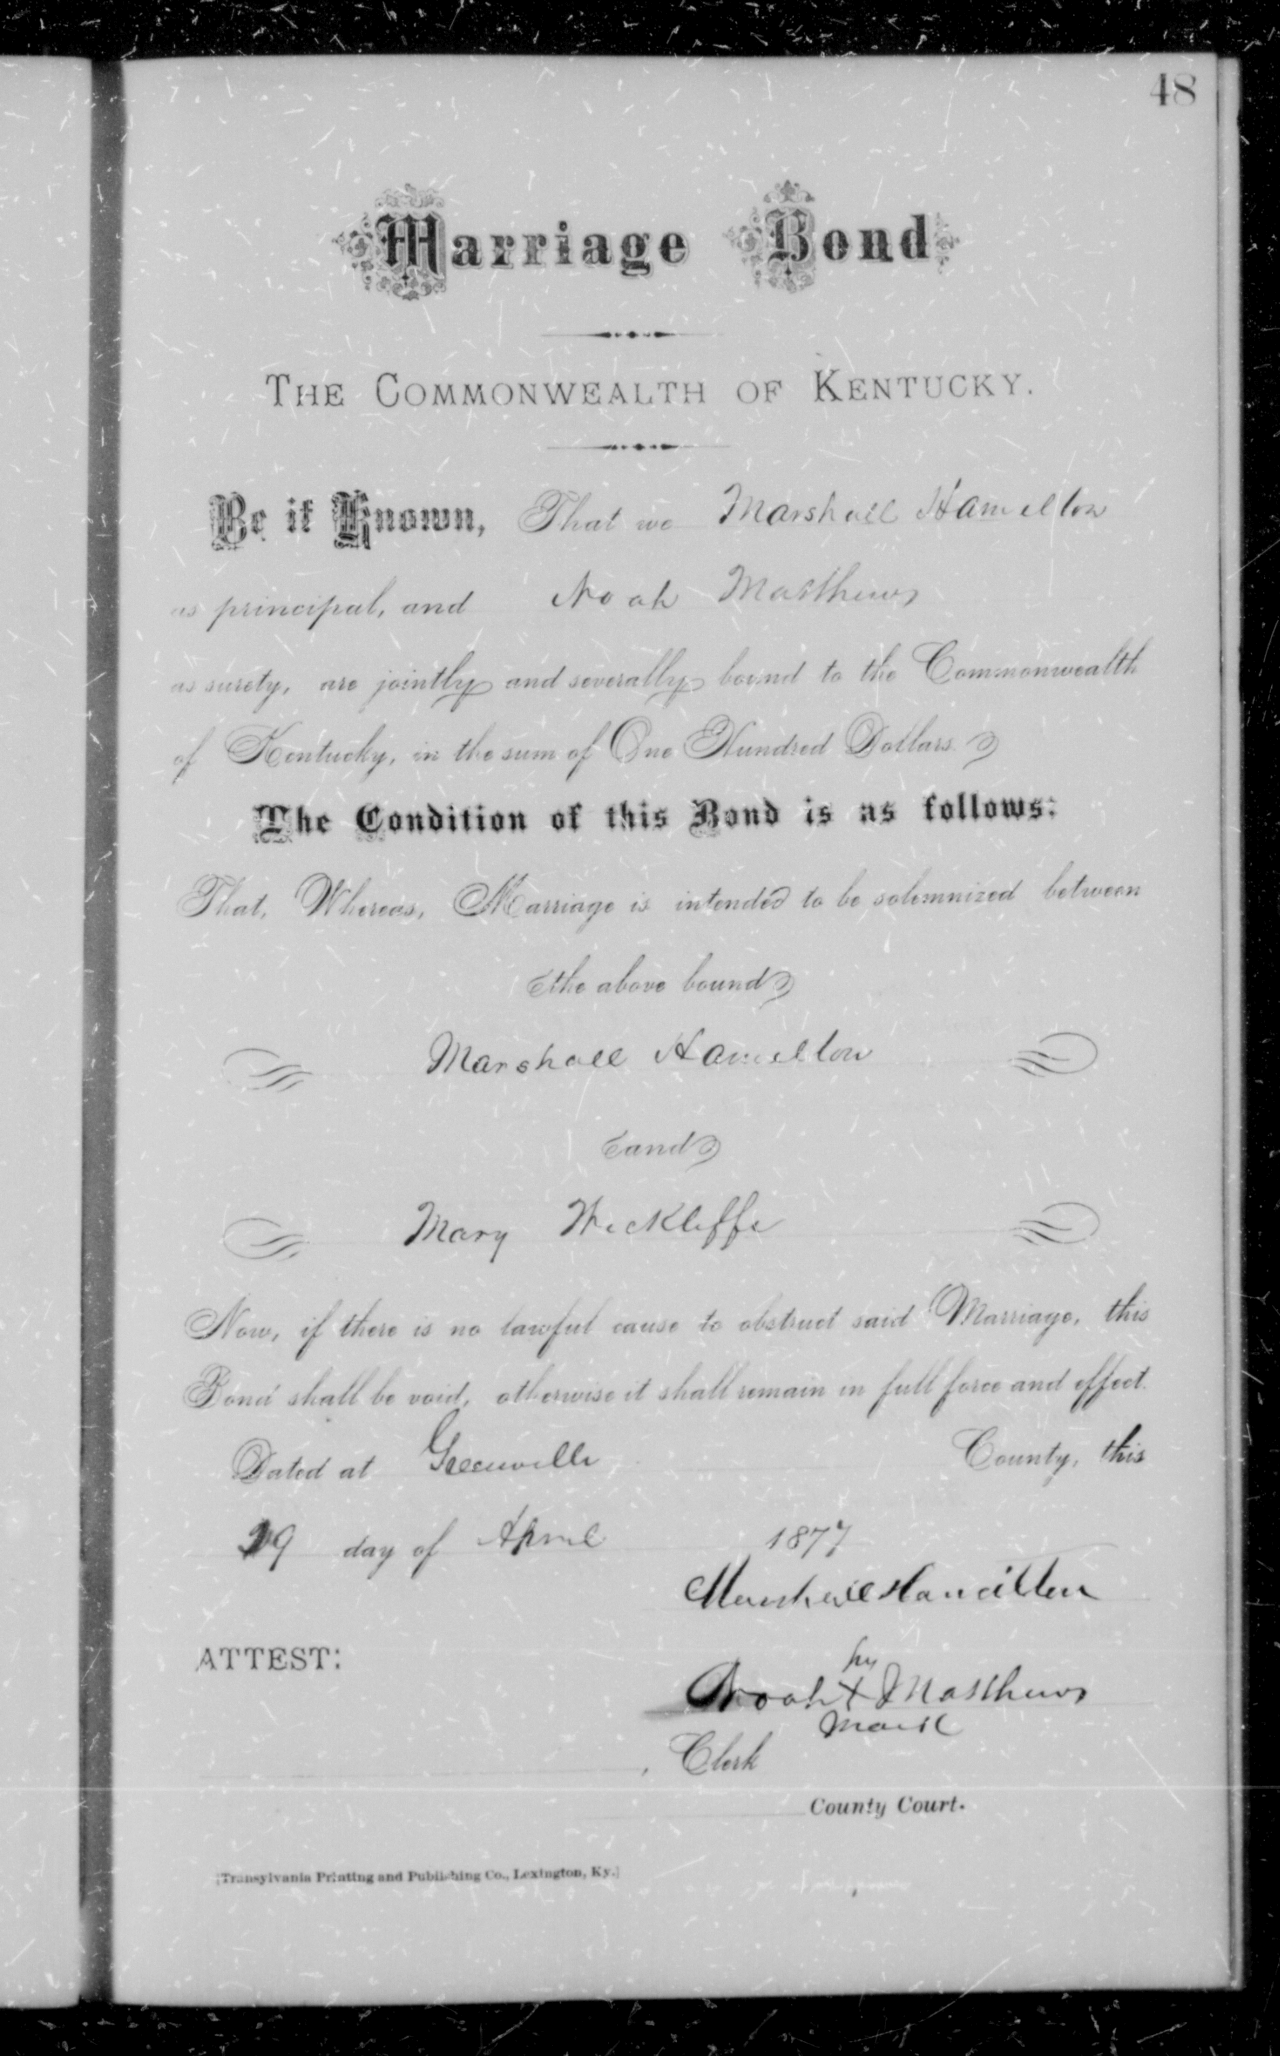 48
Marriage Bond
THE COMMONWEALTH OF KENTUCKY.
Be it Known, That we Marshall Hamelton
as principal, and Noah Matthews
as surety, are jointly and severally bound to the Commonwealth
of Kentucky, in the sum of One Hundred Dollars.
The Condition of this Bond is as follows:
That, Whereas, Marriage is intended to be solemnized between
the above bound
Marshall Hamelton
and
Mary Weckleffe
Now, if there is no lawful cause to obstruct said Marriage, this
Bond shall be void, otherwise it shall remain in full force and effect.
Dated at Greenville County, this
19 day of April 1877
Marshall Hamilton
ATTEST:
his
Noah X Matthews
Mark
, Clerk
County Court.
[Transylvania Printing and Publishing Co., Lexington, Ky.]